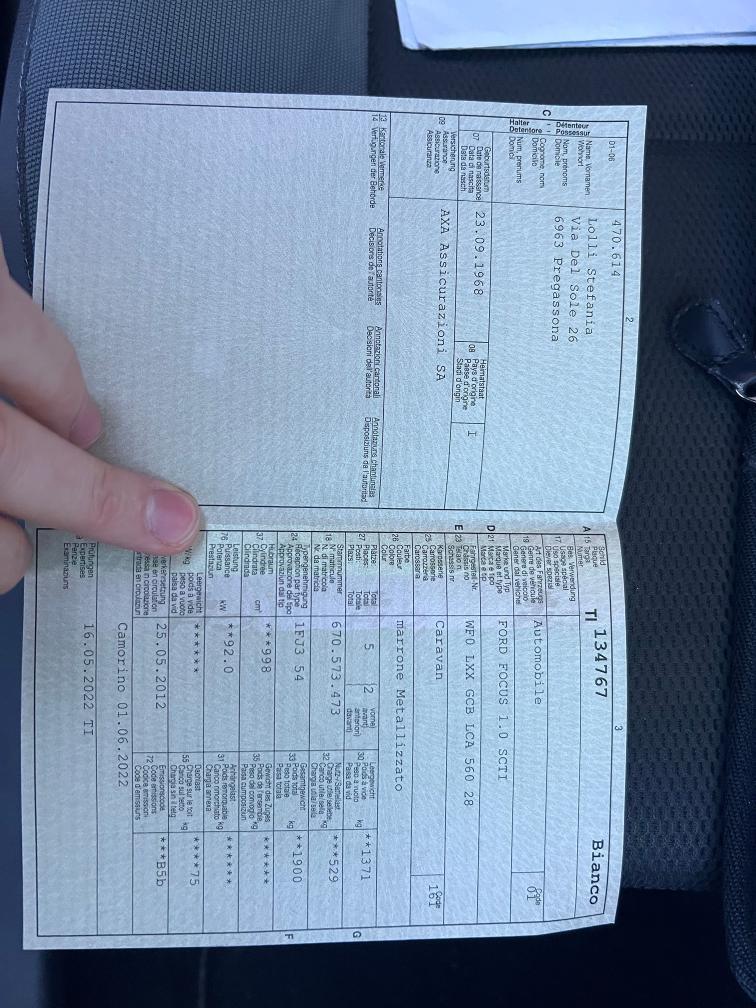 470.614
2
01-06
C
Détenteur
Possessur
Halter
Detentore
Name, Vornamen
Wohnort
Nom, prénoms
Domicile
Cognome, nomi
Domicilio
Num, prenums
Domicil
Lolli Stefania
Via Del Sole 26
6963 Pregassona
07
Geburtsdatum
Date de naissance
Data di nascita
Data da nasch.
23.09.1968
08
Heimatstaat
Pays d'origine
Paese d'origine
Stadi d'origin
I
09
Versicherung
Assurance
Assicurazione
Assicuranza
AXA Assicurazioni SA
13 Kantonale Vermerke
14 Verfügungen der Behörde
Annotations cantonales
Décisions de l'autorité
Annotazioni cantonali
Decisioni dell'autorità
Annotaziuns chantunalas
Disposiziuns da l'autoritad
3
A 15
Schild
Plaque
Targa
TI 134767
Bianco
17
Bes. Verwendung
Usage spécial
Uso speciale
Diever spezial
19
Art des Fahrzeugs
Genre de véhicule
Genere di veicolo
Gener dal vehichel
Automobile
Code
01
D 21
Marke und Typ
Marque et type
Marca e tipo
Marca e tip
FORD FOCUS 1.0 SCTI
E 23
Fahrgestell-Nr.
Châssis no
Telaio n.
Schassis nr.
WF0 LXX GCB LCA 560 28
25
Karosserie
Carrosserie
Carrozzeria
Carossaria
Caravan
Code
161
26
Farbe
Couleur
Colore
Colur
marrone Metallizzato
27
Plätze: Total
Places: Total
Posti: Totale
Plazs: Total
5
(2
vorne)
avant)
anteriori)
davant)
30
Leergewicht
Poids à vide
Peso a vuoto
Paisa da vid
kg
**1371
G
18
Stammnummer
N° matricule
N. di matricola
Nr. da matricla
670.573.473
32
Nutz-/Sattellast
Charge utile/sellette
Carico utile/sella
Chargia util/sella
kg
***529
24
Typengenehmigung
Réception par type
Approvazione del tipo
Approvaziun dal tip
1FJ3 54
33
Gesamtgewicht
Poids total
Peso totale
Paisa totala
kg
**1900
F
37
Hubraum
Cylindrée
Cilindrata
Cilindrada
cm³
***998
35
Gewicht des Zuges
Poids de l'ensemble
Peso del convoglio
Paisa cumposiziun
kg
******
76
Leistung
Puissance
Potenza
Prestaziun
kW
**92.0
31
Anhängelast
Poids remorquable
Carico rimorchiato
Chargia annexa
kg
******
Leergewicht
poids à vide
peso a vuoto
paisa da vid
******
55
Dachlast
Charge sur le toit
Carico sul tetto
Chargia sin il tetg
kg
****75
25.05.2012
72
Emissionscode
Code émissions
Codice emissioni
Code d'emissiuns
***B5b
Camorino 01.06.2022
Prüfungen
Expertises
Perizie
Examinaziuns
16.05.2022 TI